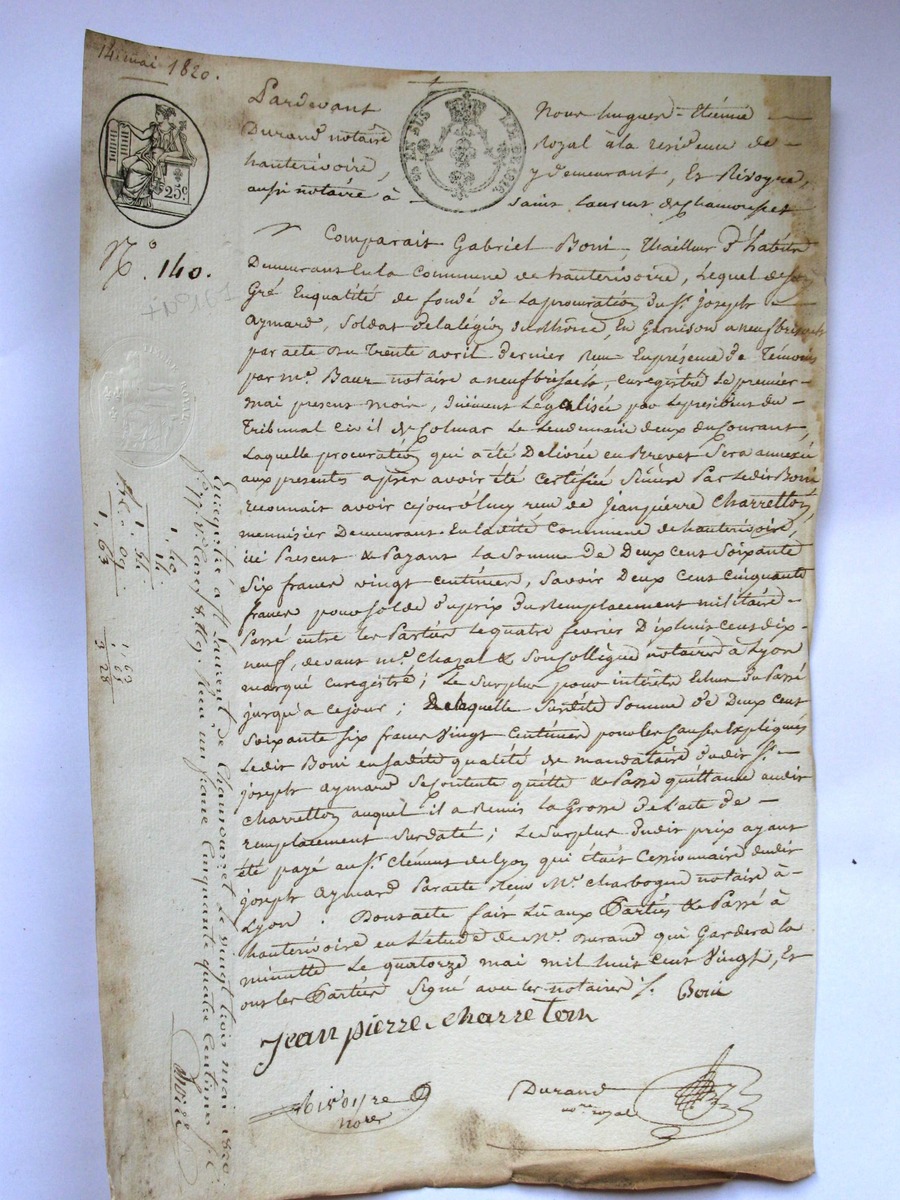 14 mai 1820.
Pardevant Nous hugues-Etienne
Durand notaire Royal à la residence de
hauterivoire, y demeurant, Et Rivoyre,
aussi notaire à Saint Laurent de Chamousset
25c.
N.o 140.
Comparait Gabriel Boni, thailleur d'habits
Demeurant En la Commune de hauterivoire, Lequel de son
Gré En qualité de fondé de la procuration du Sr. joseph
aymard, Soldat de la légion du Rhône, En Garnison a neufbrisack
par acte du trente avril dernier Reçu En présence de témoins
par me. Baur notaire a neufbrisack, enregistré le premier
mai present mois, duëment Légalisée par Le president du
Tribunal Civil de Colmar Le Lendemain deux du Courant,
Laquelle procuration qui a été Delivrée en Brevet Sera annexée
aux presentes après avoir été Certifiée Sincère Par Ledit Boni
reconnait avoir cejourd'huy reçu de jean pierre Charretton,
mennisier Demeurant En Ladite Commune de hauterivoire,
ici Present & Payant La Somme de Deux Cent Soixante
Six francs vingt Centimes, Savoir Deux Cent Cinquante
francs pour Solde du prix du Remplacement militaire
Passé entre les Parties Le quatre fevrier Dixhuit Cent dix
neuf, devant me. Chazal & Son Collègue notaires à Lyon
marqué enregistré; Le Surplus pour interêts Echus du Passé
jusqu'a cejour; De laquelle Susdite Somme de Deux Cent
Soixante Six francs Vingt Centimes pour les Causes Expliquées
Ledit Boni en Sadite qualité de mandataire dudit Sr.
joseph aymard Se Contente quitte & Passe quittance audit
Charretton auquel il a Remis La Grosse de L'acte de
remplacement Surdaté; Le Surplus dudit prix ayant
été payé au Sr. Clément de Lyon qui était Cessionnaire dudit
joseph aymard Par acte reçu Me. Charbogne notaire à
Lyon. Dont acte fait Lû aux Parties & Passé à
hauterivoire en L'étude de Me. Durand qui Gardera la
minutte Le quatorze mai mil huit Cent Vingt, Et
ont les Parties Signé avec les notaires. Boni
jean pierre charreton
Rivoyre
nore
Durand
nore royal
Enregistré à St. Laurent de Chamousset le vingt trois mai 1820.
Reçu un franc Cinquante quatre Centimes
1, 40
14
1, 54
09
1, 63
1, 63
3 28